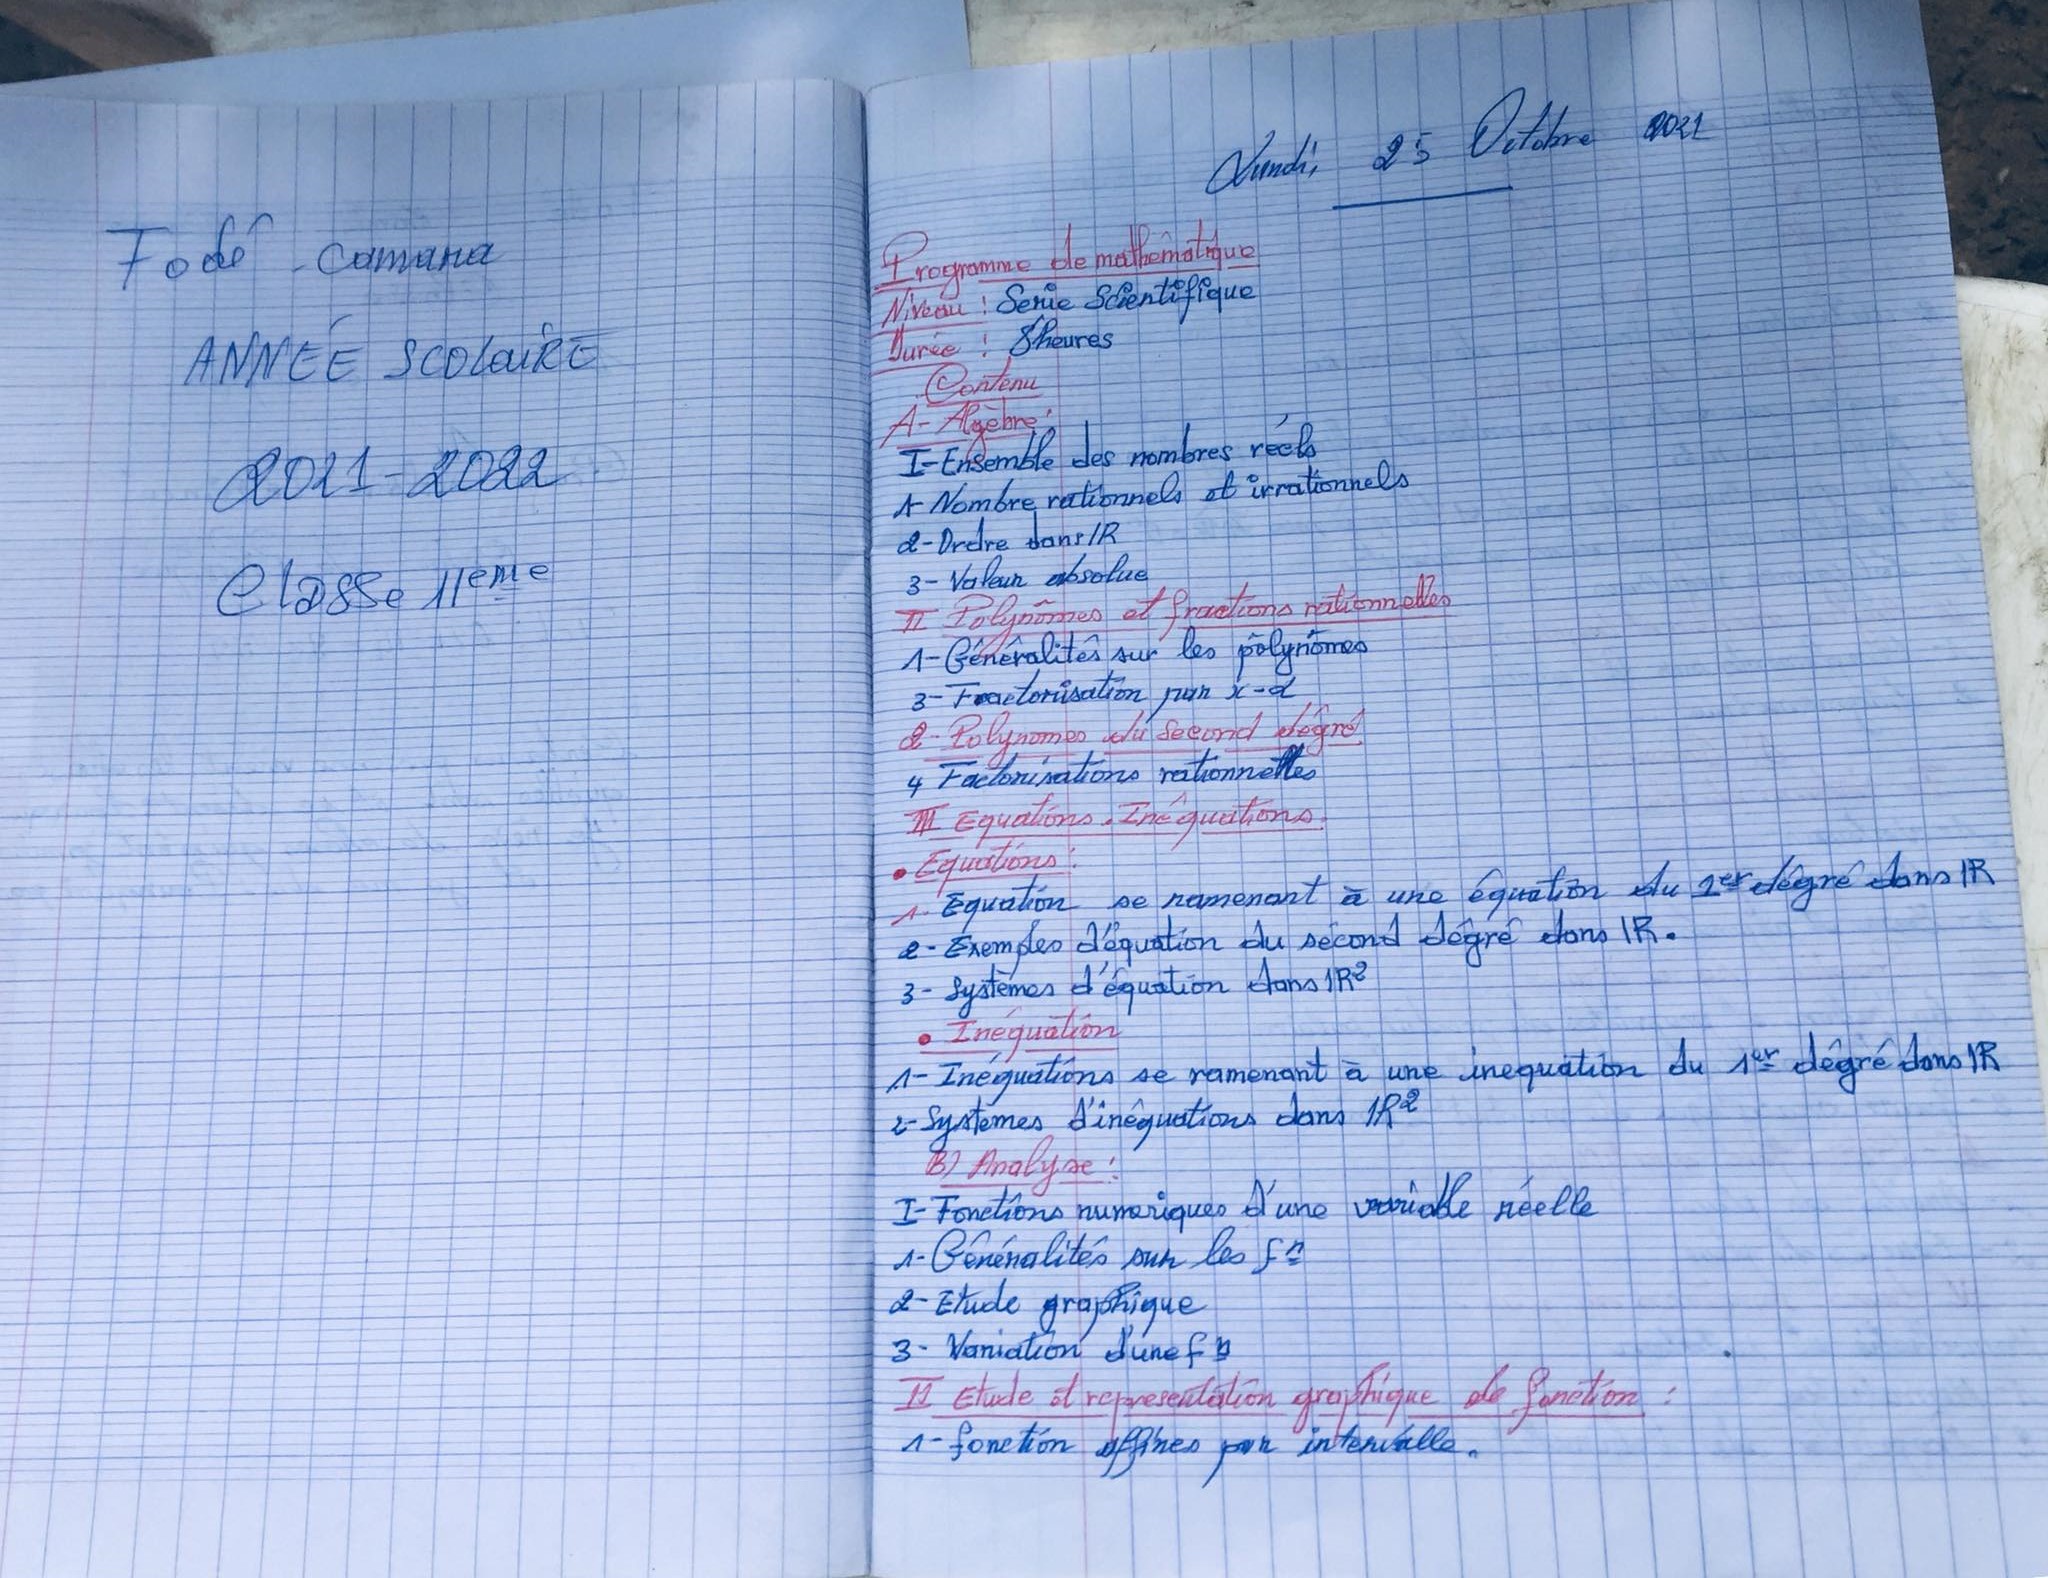 Fodé Camara
ANNÉE SCOLAIRE
2021-2022
Classe 11ème
Lundi, 25 Octobre 2021
Programme de mathématique
Niveau : Serie Scientifique
Durée : 8heures
Contenu
A- Algèbre :
I- Ensemble des nombres réels
1- Nombre rationnels et irrationnels
2- Ordre dans IR
3- Valeur absolue
II Polynômes et fractions rationnelles
1- Généralités sur les polynômes
3- Factorisation par x-α
2- Polynomes du second dégré
4 Factorisations rationnelles
III Equations. Inéquations.
• Equations :
1- Equation se ramenant à une équation du 1er dégré dans IR
2- Exemples d'équation du second dégré dans IR.
3- Systèmes d'équation dans IR²
• Inéquation
1- Inéquations se ramenant à une inequation du 1er dégré dans IR
2- Systèmes d'inéquations dans IR²
B) Analyse :
I- Fonctions numeriques d'une variable réelle
1- Généralités sur les fn
2- Etude graphique
3- Variation d'une fn
II Etude et representation graphique de fonction :
1- fonction affines par intervalle.